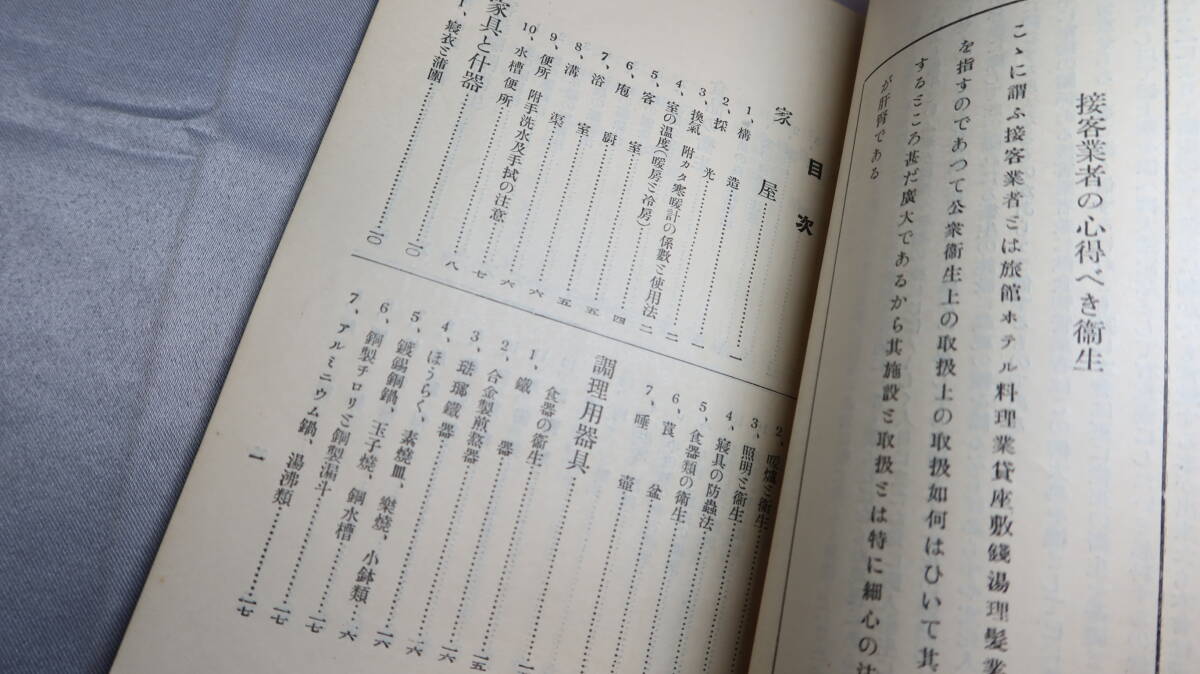 接客業者の心得べき衞生
こゝに謂ふ接客業者とは旅館ホテル料理業貸座敷錢湯理髮業
を指すのであつて公衆衞生上の取扱上の取扱如何はひいて其
するところ甚だ廣大であるから其施設と取扱とは特に細心の注
が肝腎である
目次
家屋
1、構造……一
2、採光……一
3、換氣 附カタ寒暖計の係數と使用法……二
4、室の温度(暖房と冷房)……二
5、客室……四
6、庖廚……五
7、浴室……五
8、溝渠……六
9、便所……六
10、水槽便所 附手洗水及手拭の注意……七
……八
家具と什器……一〇
1、寢衣と蒲團……一〇
2、暖爐と衞生
3、照明と衞生
4、寢具の防蟲法
5、食器類の衞生
6、莨盆
7、唾壺
調理用器具
食器の衞生
1、鐵器
2、合金製煎熬器……一五
3、琺瑯鐵器……一六
4、ほうらく、素燒皿、樂燒、小鉢類……一六
5、鍍錫銅鍋、玉子燒、銅水槽……六
6、銅製チロリと銅製漏斗……一七
7、アルミニウム鍋、湯沸類……一七